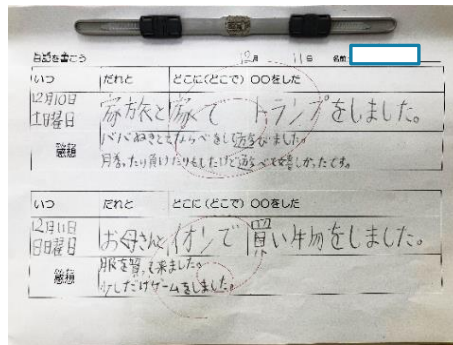 日記を書こう 12月 11日 名前
いつ だれと どこに(どこで) 〇〇をした
12月10日 家族と家で トランプをしました。
土曜日
感想 ババぬきと七ならべをして遊びました。
勝ったり負けたりもしたけど遊べて嬉しかったです。
いつ だれと どこに(どこで) 〇〇をした
12月11日 お母さんとイオンで 買い物をしました。
日曜日
感想 服を買って来ました。
少しだけゲームをしました。